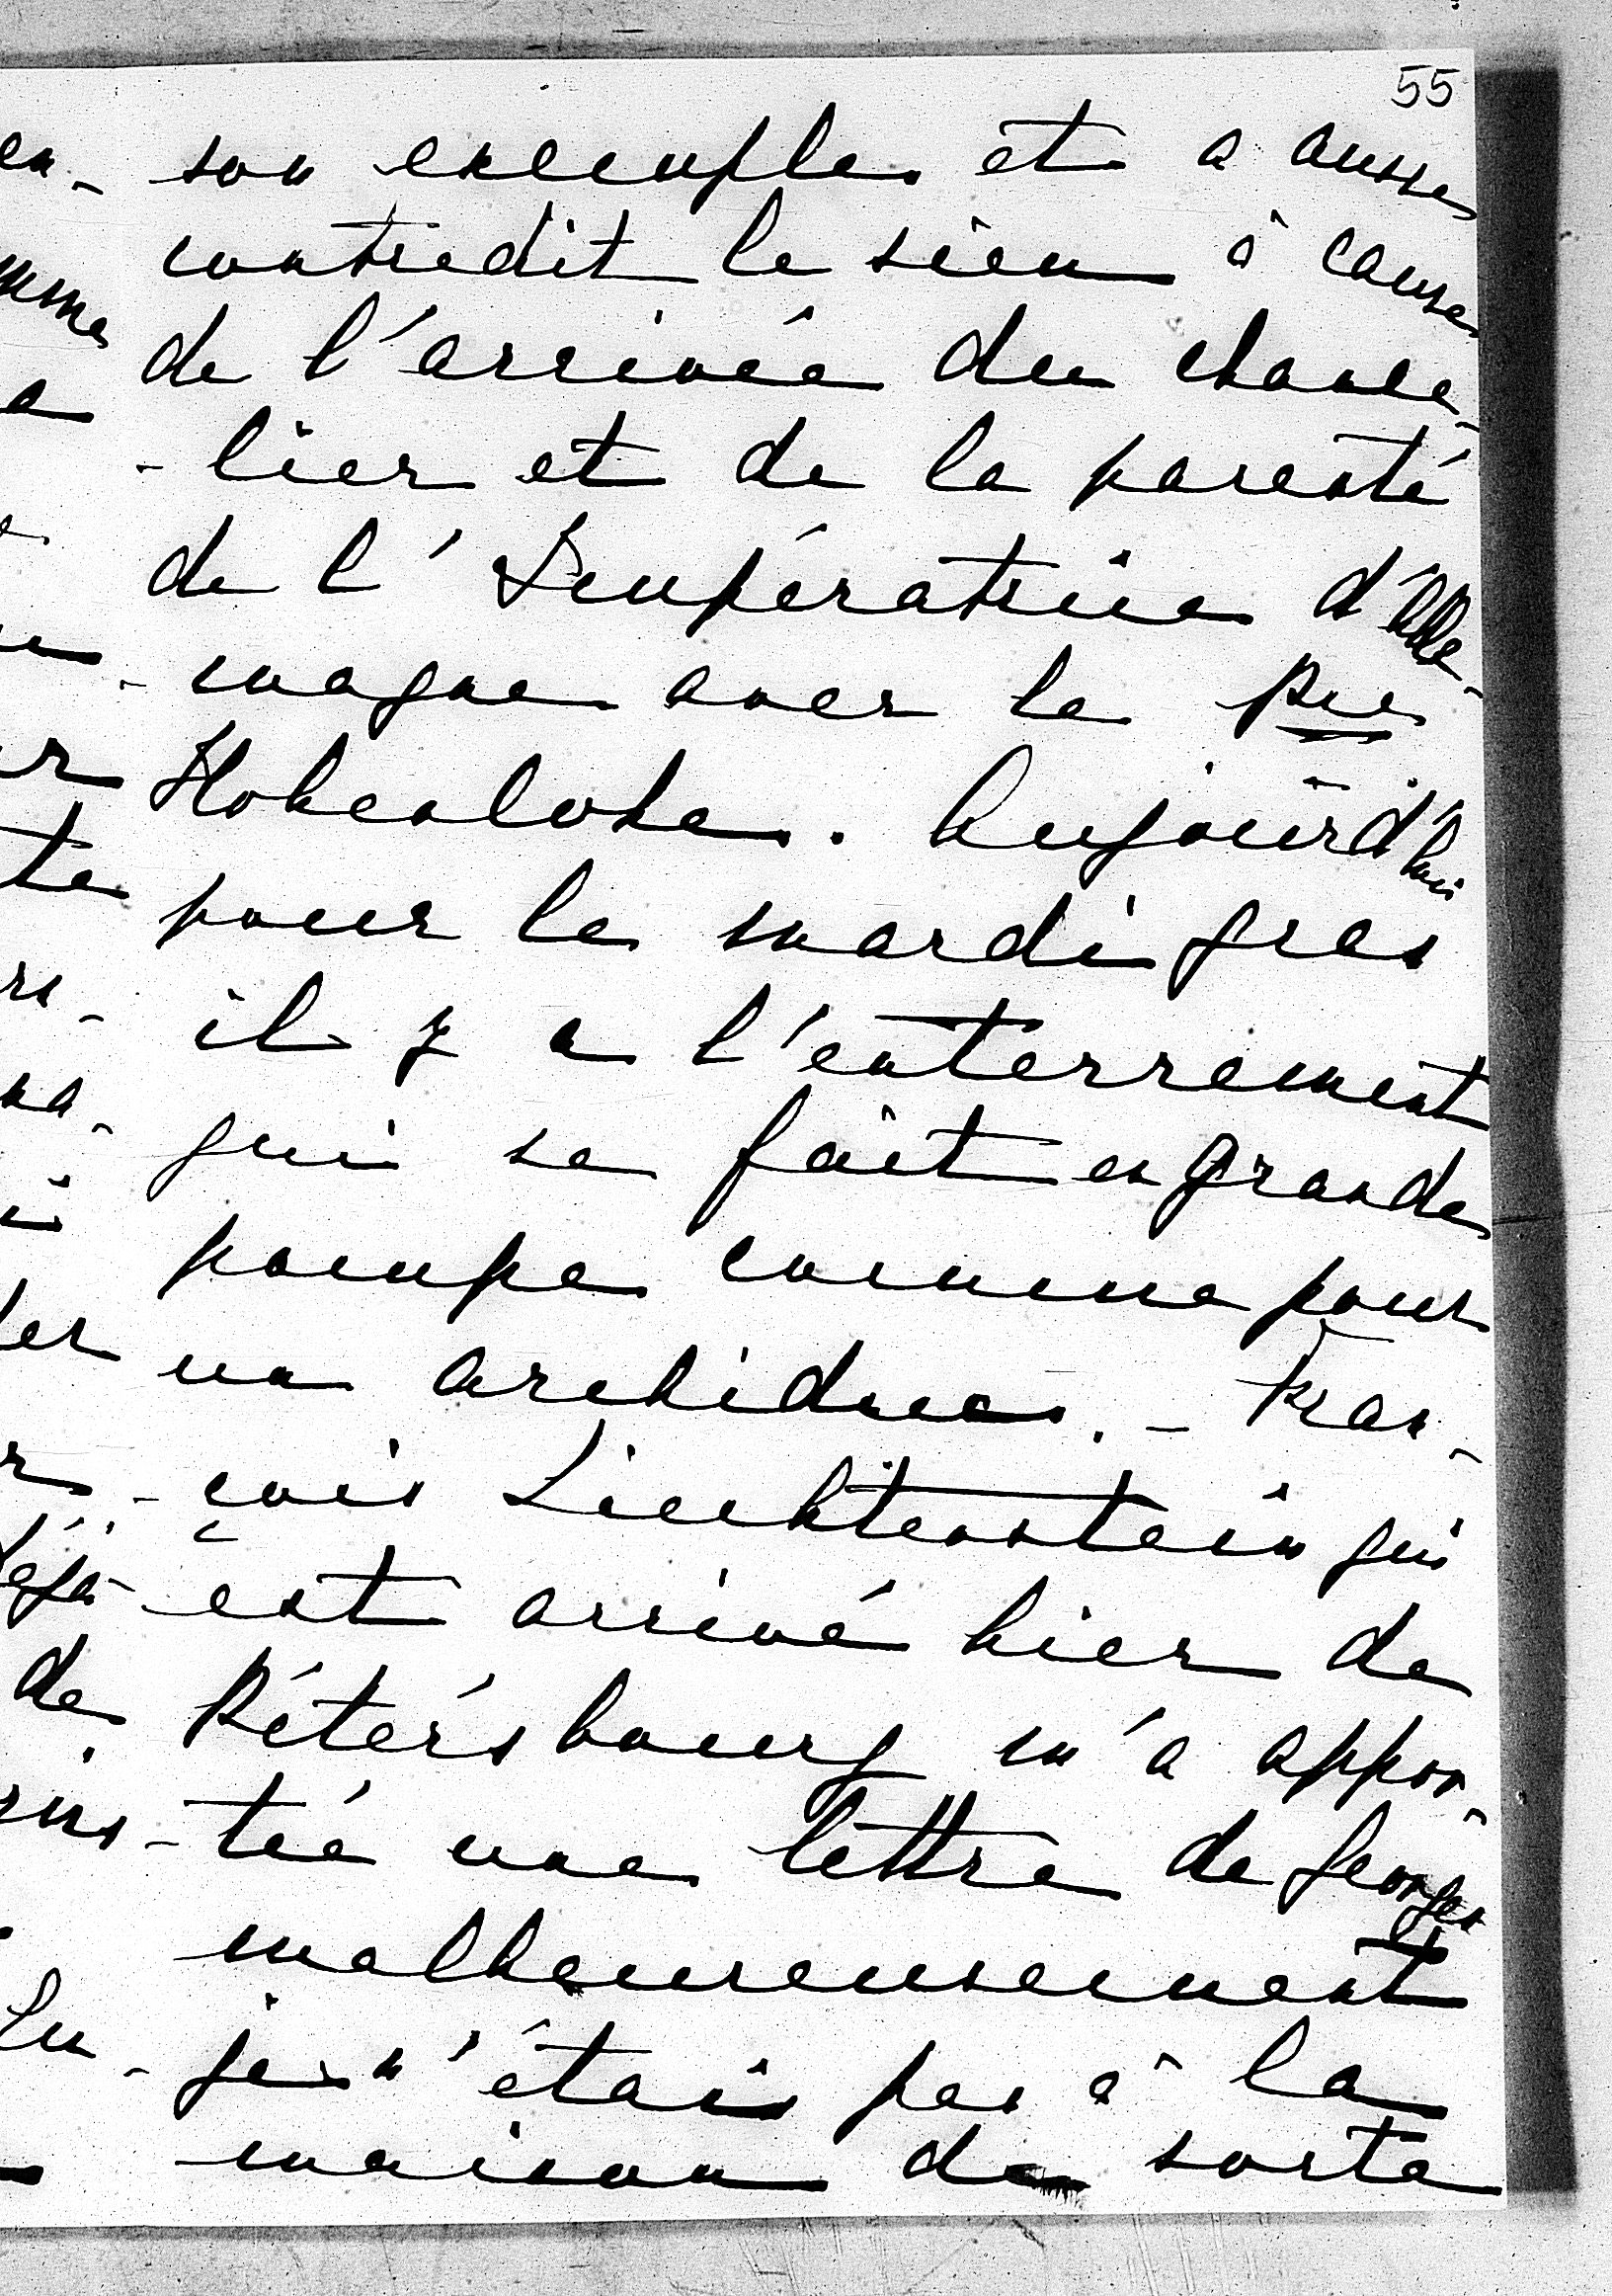 55
son exemple et a aussi
contredit le sien à cause
de l'arrivée du chance-
-lier et de la parenté
de l'Impératrice d'Alle-
-magne avec le Pce
Hohenlohe. Aujourd'hui
pour le mardi gras
il y a l'enterrement
qui se fait en grande
pompe comme pour
un archiduc. - Fran-
-çois Liechtenstein qui
est arrivé hier de
Pétersbourg m'a appor-
-té une lettre de Georges
malheureusement
je n'étais pas à la
maison de sorte